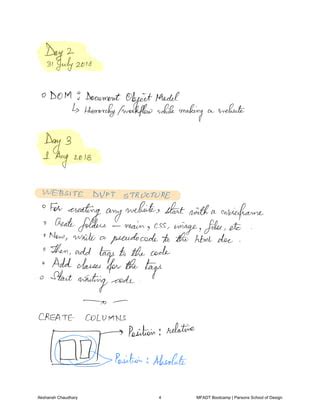 Day 2
31 July 2018
DOM : Document Object Model
↳ Hierarchy/workflow while making a website
Day 3
1 Aug 2018
WEBSITE DVPT STRUCTURE
For creating any website, start with a wireframe
Create folders — main, css, image, files, etc.
Now, write a pseudocode to the html doc.
Then, add tags to the code
Add classes for the tags
Start writing code
CREATE COLUMNS
Position : relative
Position : Absolute
Akshansh Chaudhary 4 MFADT Bootcamp | Parsons School of Design